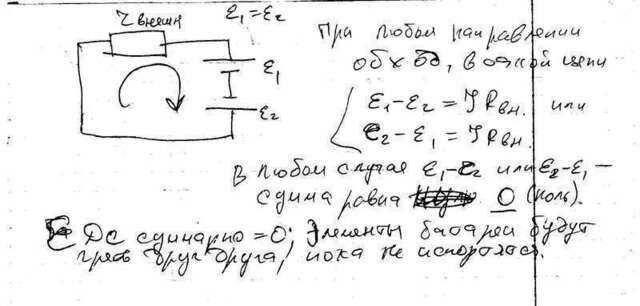 r внешн
ε₁=ε₂
ε₁
ε₂
При любом направлении
обхода, в
ε₁-ε₂ = J Rвн. или
ε₂-ε₁ = J Rвн.
В любом случае ε₁-ε₂ или ε₂-ε₁ —
сумма равна 0 (ноль).
ЭДС суммарно = 0; Элементы батареи будут
друг друга, пока не испортятся.